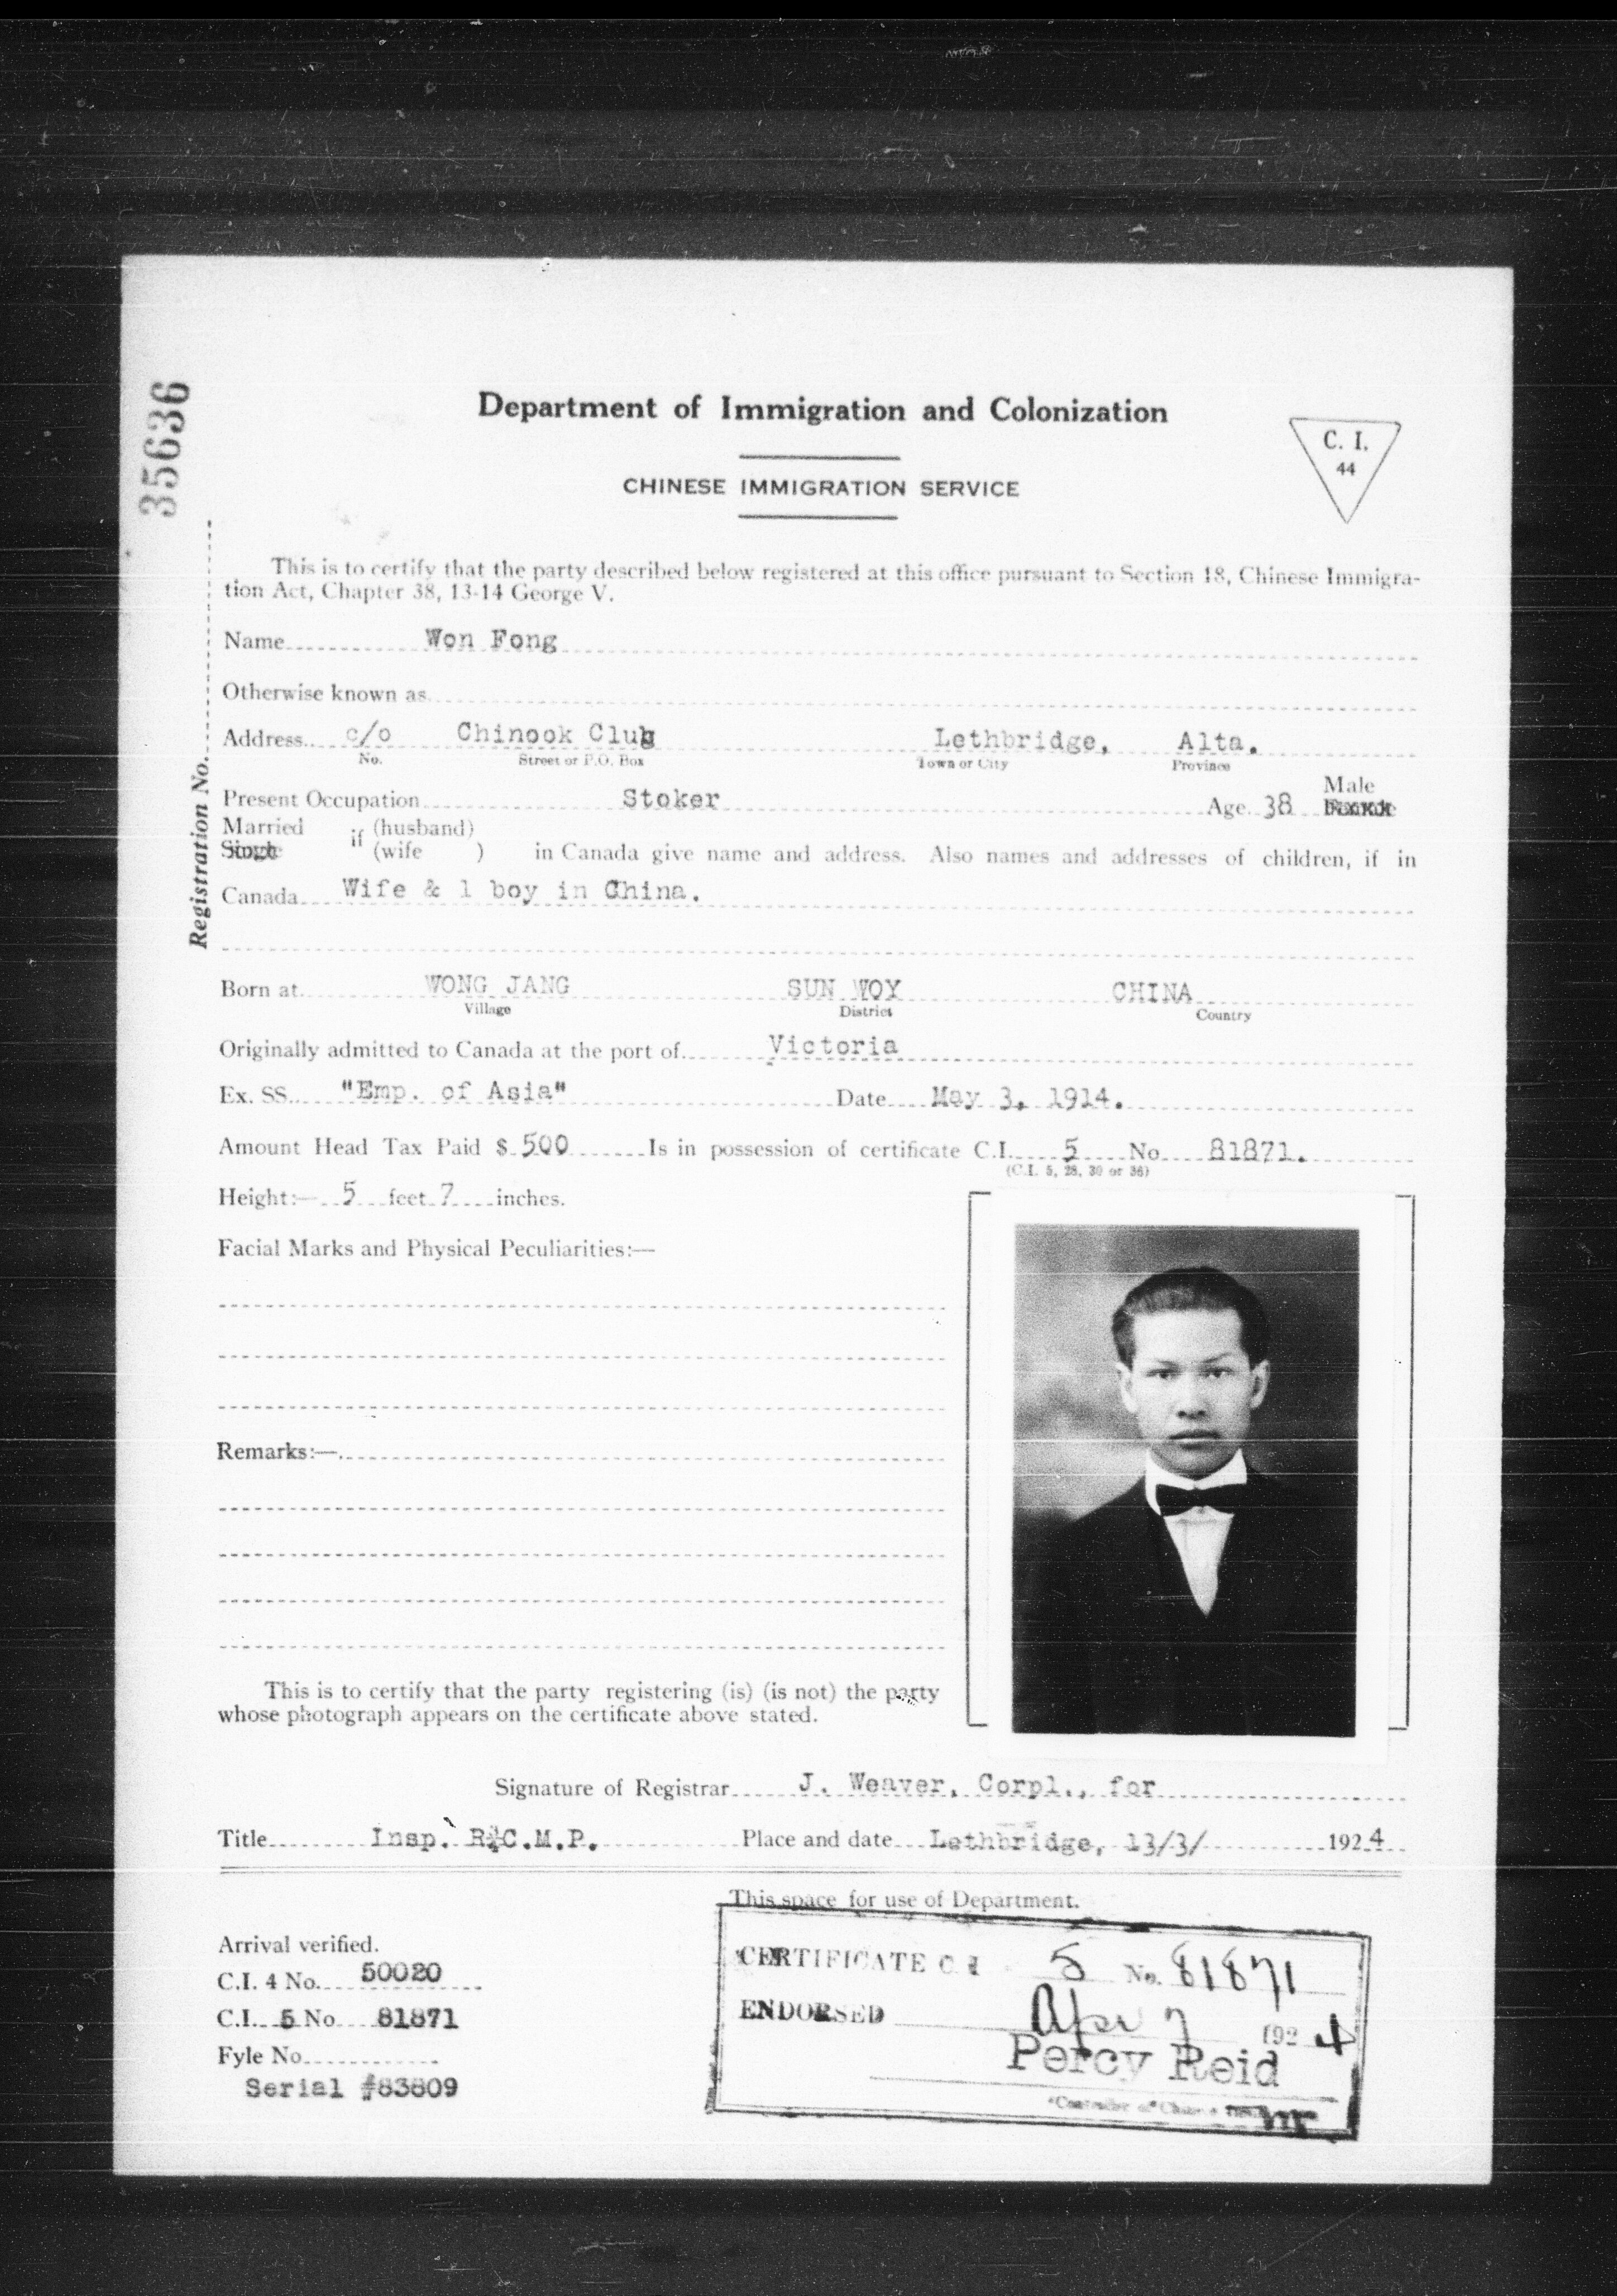 35636
Registration No.
Department of Immigration and Colonization
C. I.
44
CHINESE IMMIGRATION SERVICE
This is to certify that the party described below registered at this office pursuant to Section 18, Chinese Immigra-
tion Act, Chapter 38, 13-14 George V.
Name Won Fong
Otherwise known as
Address c/o Chinook Club Lethbridge, Alta.
No. Street or P.O. Box Town or City Province
Present Occupation Stoker Age 38 Male
Married if (husband)
(wife ) in Canada give name and address. Also names and addresses of children, if in
Canada Wife & 1 boy in China.
Born at WONG JANG SUN WOY CHINA
Village District Country
Originally admitted to Canada at the port of Victoria
Ex. SS. "Emp. of Asia" Date May 3, 1914.
Amount Head Tax Paid $ 500 Is in possession of certificate C.I. 5 No 81871.
(C.I. 5, 28, 30 or 36)
Height:— 5 feet 7 inches.
Facial Marks and Physical Peculiarities:—
Remarks:—
This is to certify that the party registering (is) (is not) the party
whose photograph appears on the certificate above stated.
Signature of Registrar J. Weaver, Corpl., for
Title Insp. R.C.M.P. Place and date Lethbridge, 13/3/ 1924
This space for use of Department.
Arrival verified.
C.I. 4 No. 50020
C.I. 5 No 81871
Fyle No.
Serial #83809
CERTIFICATE C.I 5 No. 81871
ENDORSED Apr 7 1924
Percy Reid
Controller of Chinese